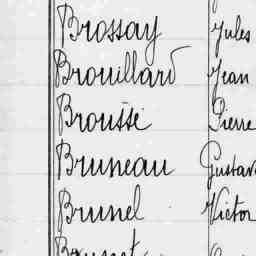 Brossay Jules
Brouillard Jean
Brousse Pierre
Bruneau Gustav
Brunel Victor